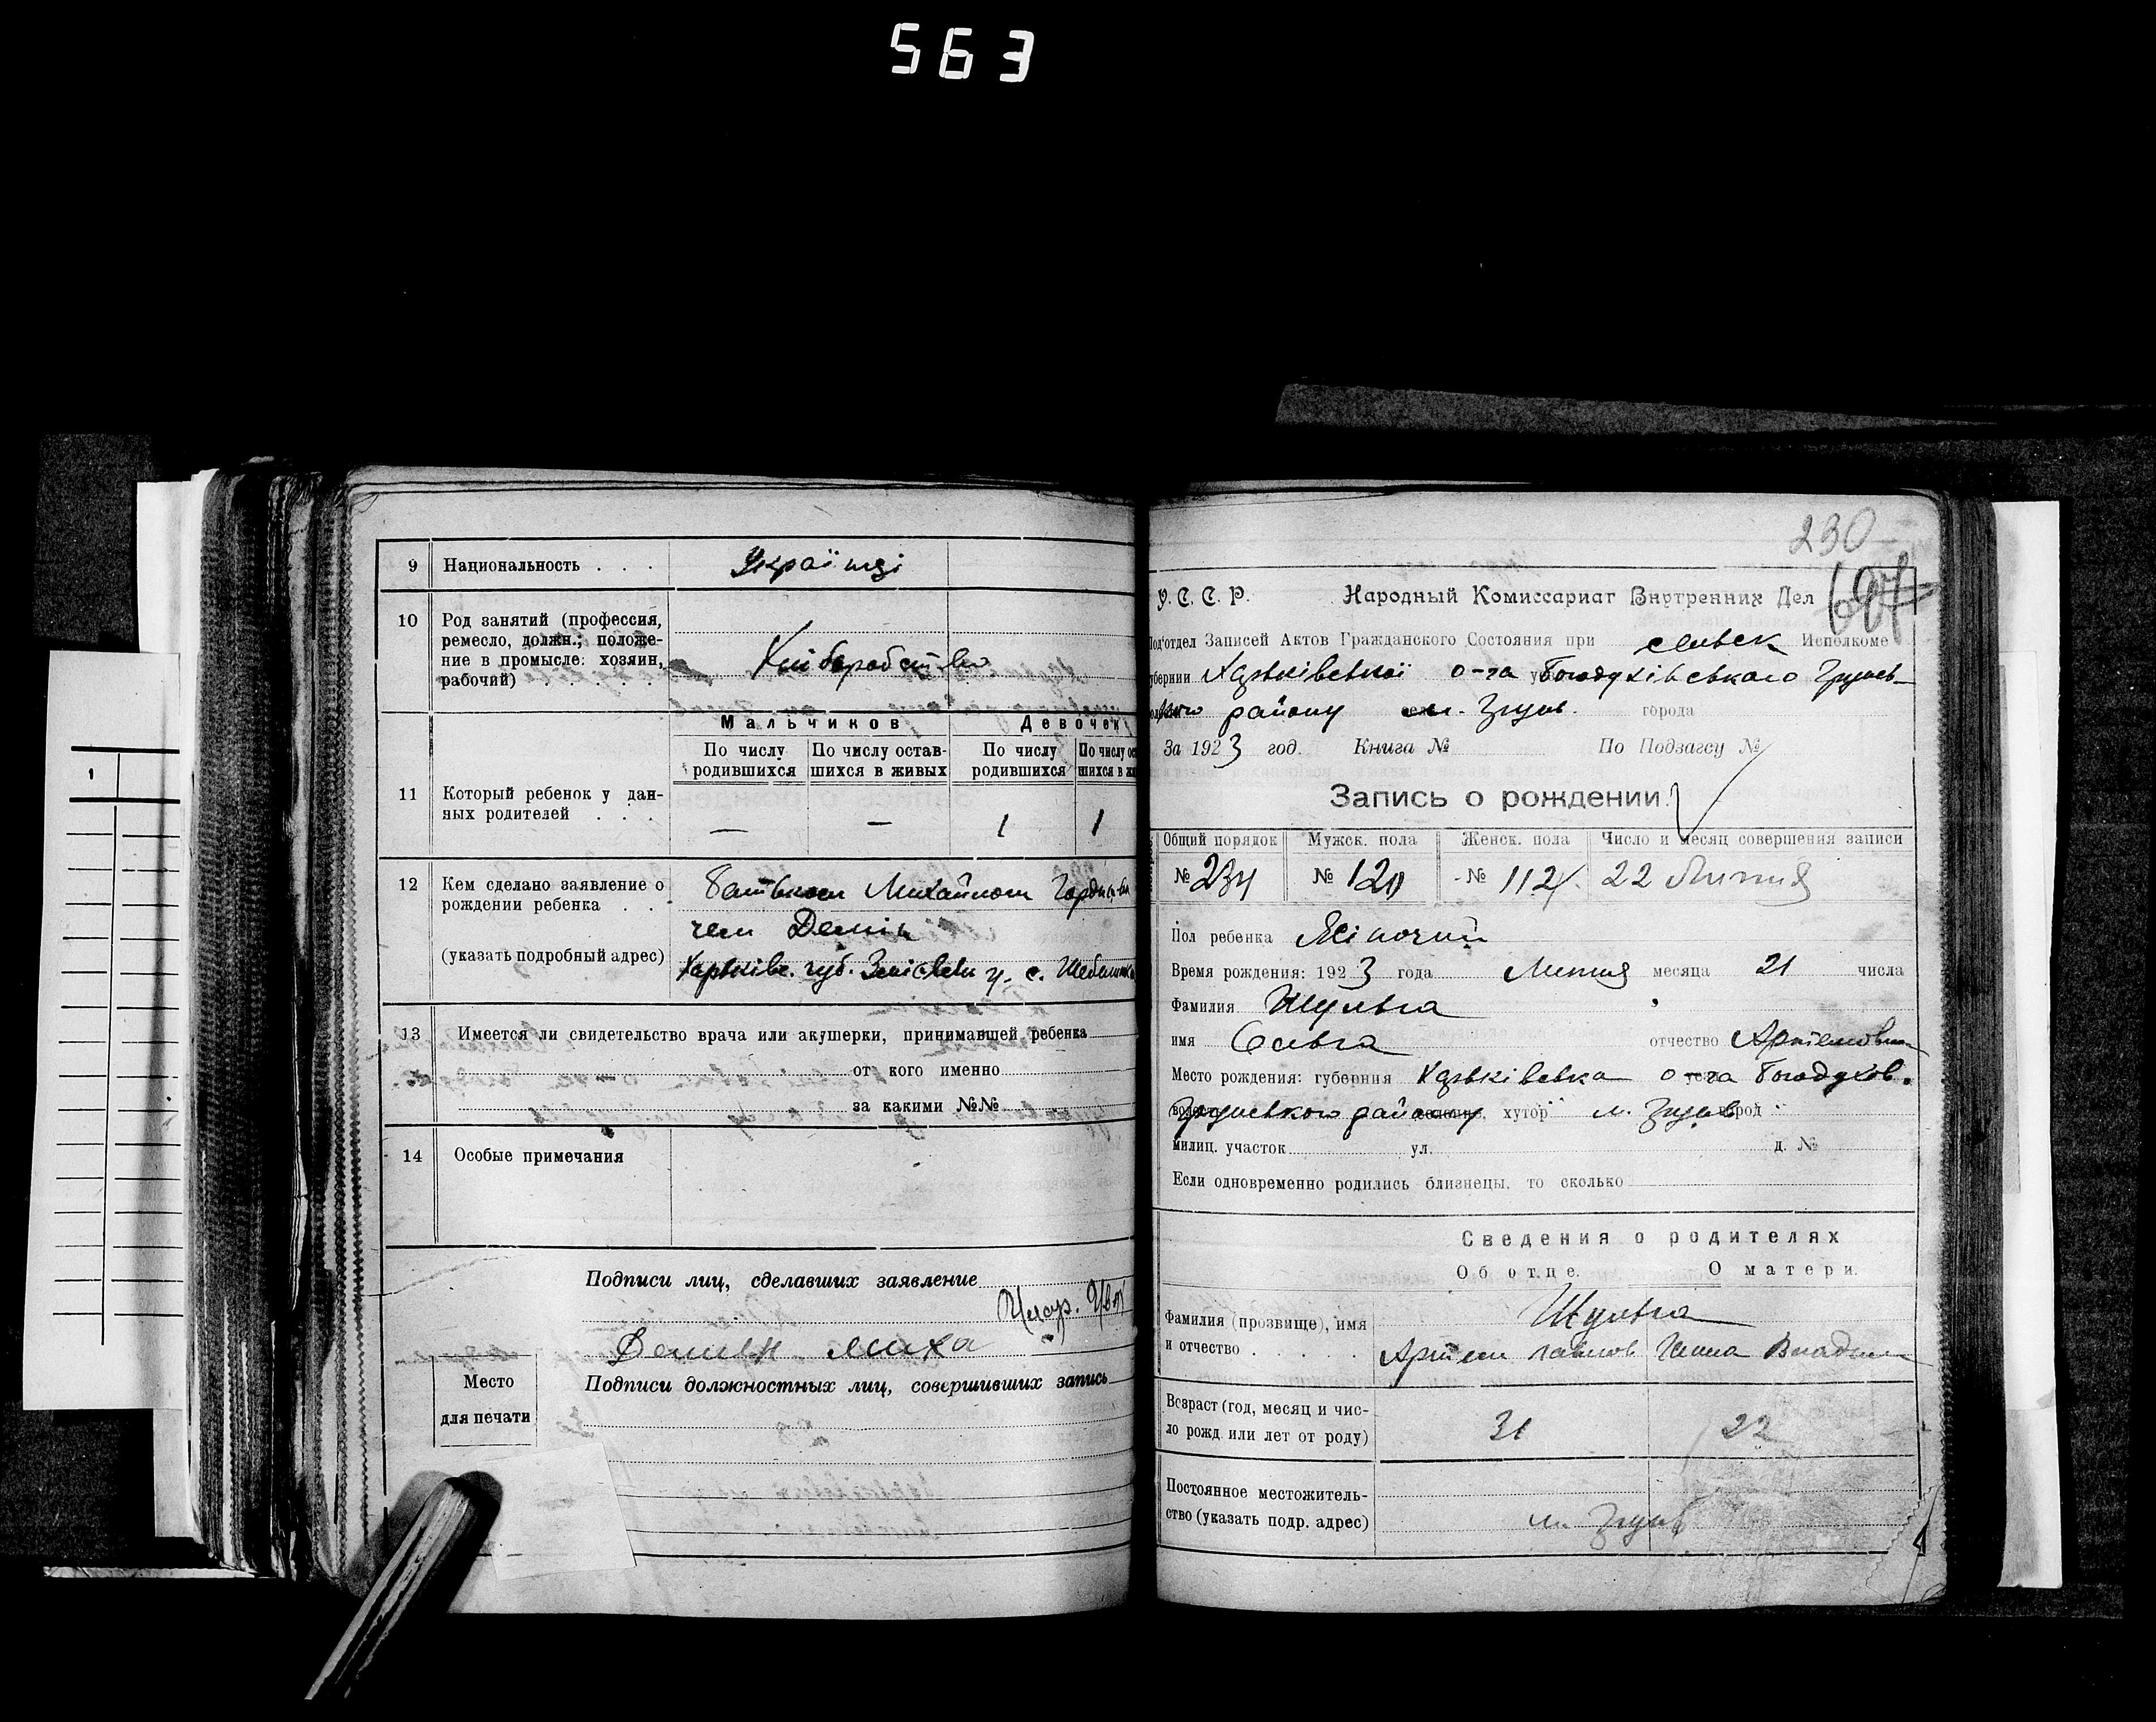 563
9 Национальность . . . Українці
10 Род занятий (профессия,
ремесло, должн.; положе-
ние в промысле: хозяин,
рабочий) . . . . . Хліборобство
Мальчиков Девочек
По числу родившихся По числу остав-шихся в живых По числу родившихся По числу ос
шихся в жи
11 Который ребенок у дан-
ных родителей . . . — — 1 1
12 Кем сделано заявление о Батьком Михайлом
рождении ребенка . . чем Демін
(указать подробный адрес) Харьківс. губ. Зміевськ у. с.
13 Имеется ли свидетельство врача или акушерки, принимавшей ребенка
от кого именно
за какими №№
14 Особые примечания
Подписи лиц, сделавших заявление
Место
для печати
Подписи должностных лиц, совершивших запись
230
697
У. С. С. Р. Народный Комиссариат Внутренних Дел
Под'отдел Записей Актов Гражданского Состояния при сельск Исполкоме
убернии Харьківської о-га Богодухівського Грунсь-
кого району м. города
За 1923 год. Книга № По Подзагсу №
Запись о рождении.
Общий порядок Мужск. пола Женск. пола Число и месяц совершения записи
№ 234 № 120 № 114 22 Липня
Пол ребенка Жіночий
Время рождения: 1923 года Липня месяца 21 числа
Фамилия Шульга
имя Ольга отчество Артемовна
Место рождения: губерния Харьківська о-га Богодухов.
району хутор м. город
милиц. участок ул. д. №
Если одновременно родились близнецы, то сколько
Сведения о родителях
Об отце. О матери.
Фамилия (прозвище), имя Шульга
и отчество . . . . Артем Павлов
Возраст (год, месяц и чис-
ло рожд. или лет от роду) 31 22
Постоянное местожитель-
ство (указать подр. адрес) м.